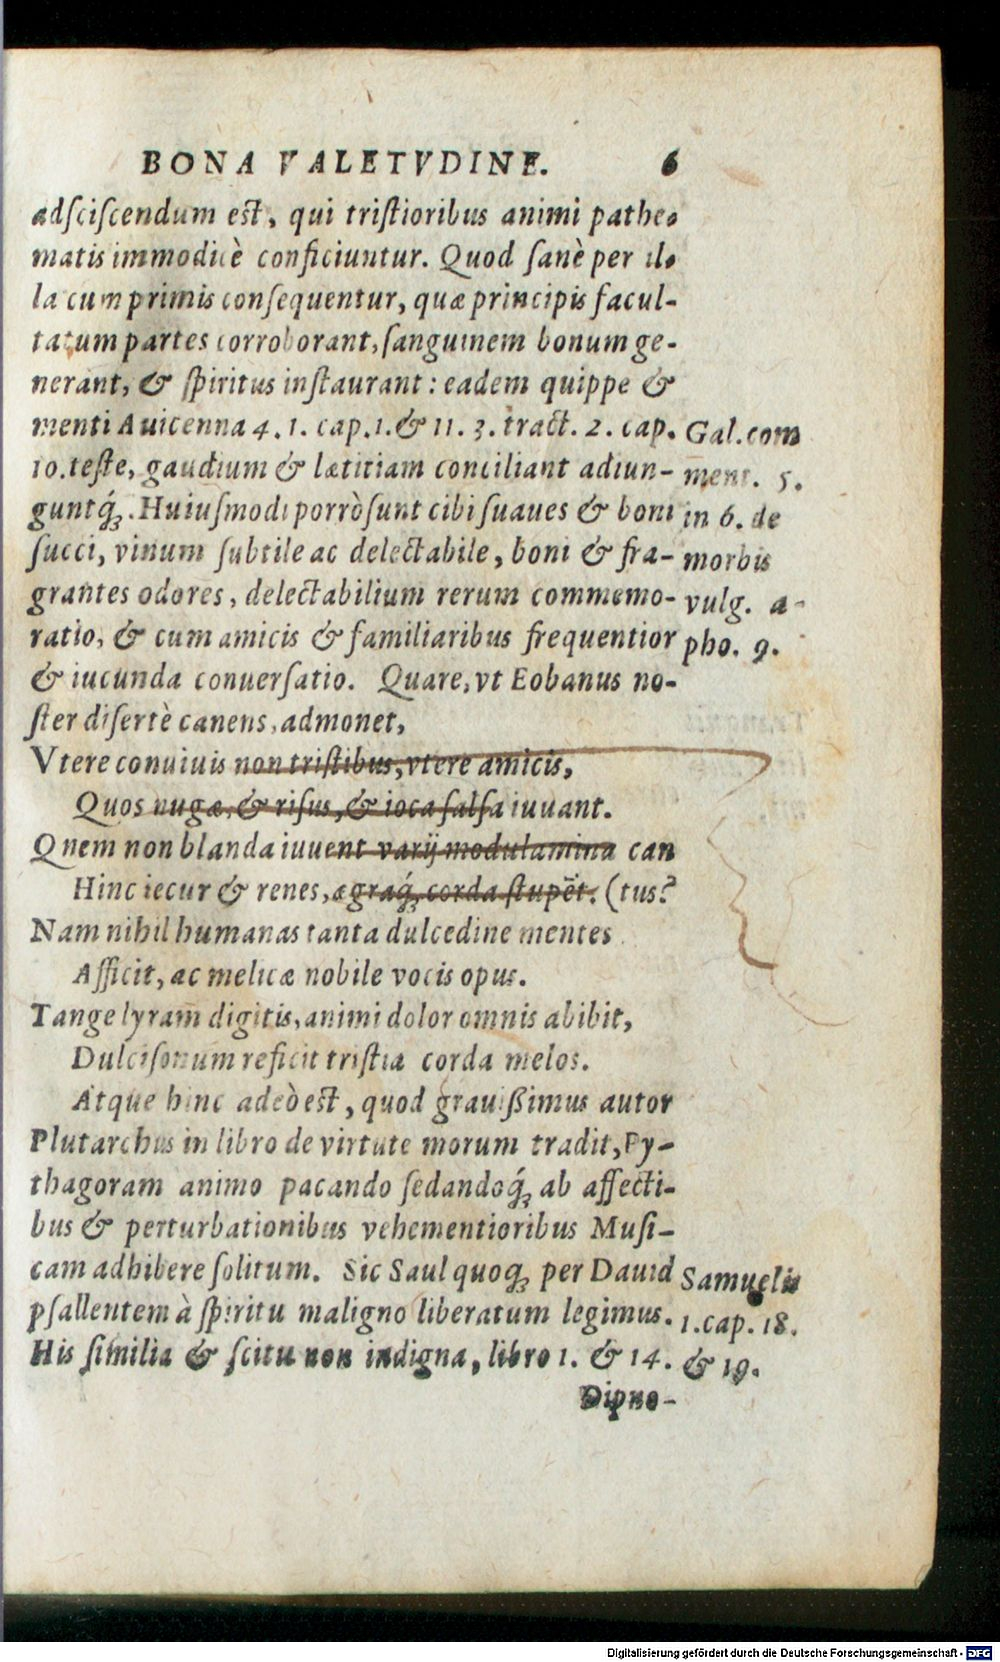 BONA VALETVDINE. 6
adſciſcendum eſt, qui triſtioribus animi pathe-
matis immodicè conficiuntur. Quod ſanè per il-
la cum primis conſequentur, quæ principis facul-
tatum partes corroborant, ſanguinem bonum ge-
nerant, & ſpiritus inſtaurant: eadem quippe &
menti Auicenna 4. 1. cap. 1. & 11. 3. tract. 2. cap.
10. teſte, gaudium & lætitiam conciliant adiun-
guntq́ꝫ. Huiuſmodi porrò ſunt cibi ſuaues & boni
ſucci, vinum ſubtile ac delectabile, boni & fra-
grantes odores, delectabilium rerum commemo-
ratio, & cum amicis & familiaribus frequentior
& iucunda conuerſatio. Quare, vt Eobanus no-
ſter diſertè canens, admonet,
Vtere conuiuis non triſtibus, vtere amicis,
Quos nugæ, & riſus, & ioca ſalſa iuuant.
Qnem non blanda iuuent varij modulamina can
Hinc iecur & renes, ægraq́ꝫ corda ſtupēt. (tus?
Nam nihil humanas tanta dulcedine mentes
Afficit, ac melicæ nobile vocis opus.
Tange lyram digitis, animi dolor omnis abibit,
Dulciſonum reficit triſtia corda melos.
Atque hinc adeò eſt, quod grauißimus autor
Plutarchus in libro de virtute morum tradit, Py-
thagoram animo pacando ſedandoq́ꝫ ab affecti-
bus & perturbationibus vehementioribus Muſi-
cam adhibere ſolitum. Sic Saul quoqꝫ per Dauid
pſallentem à ſpiritu maligno liberatum legimus.
His ſimilia & ſcitu non indigna, libro 1. & 14.
Dipno-
Gal. com
ment. 5.
in 6. de
morbis
vulg. a-
pho. 9.
Samuelis
1. cap. 18.
& 19.
Digitalisierung gefördert durch die Deutsche Forschungsgemeinschaft - DFG